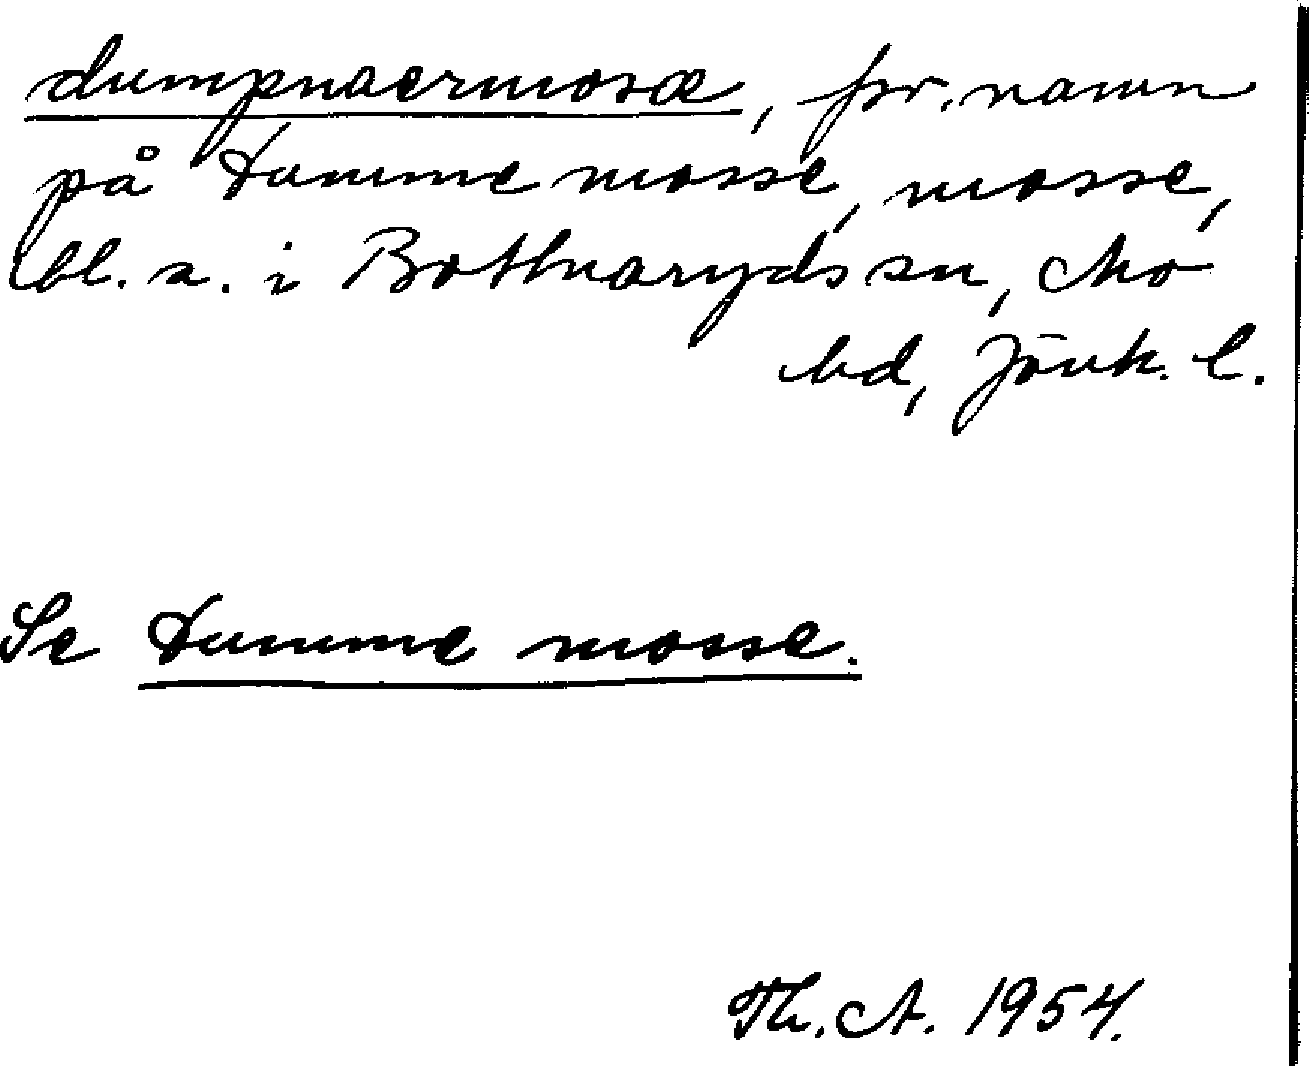 dumpnaermosæ, fsv. namn
på Dumme mosse, mosse,
bl. a. i Bottnaryds sn, Mo
hd, Jönk. l.
Se Dumme mosse.
Th. A. 1954.